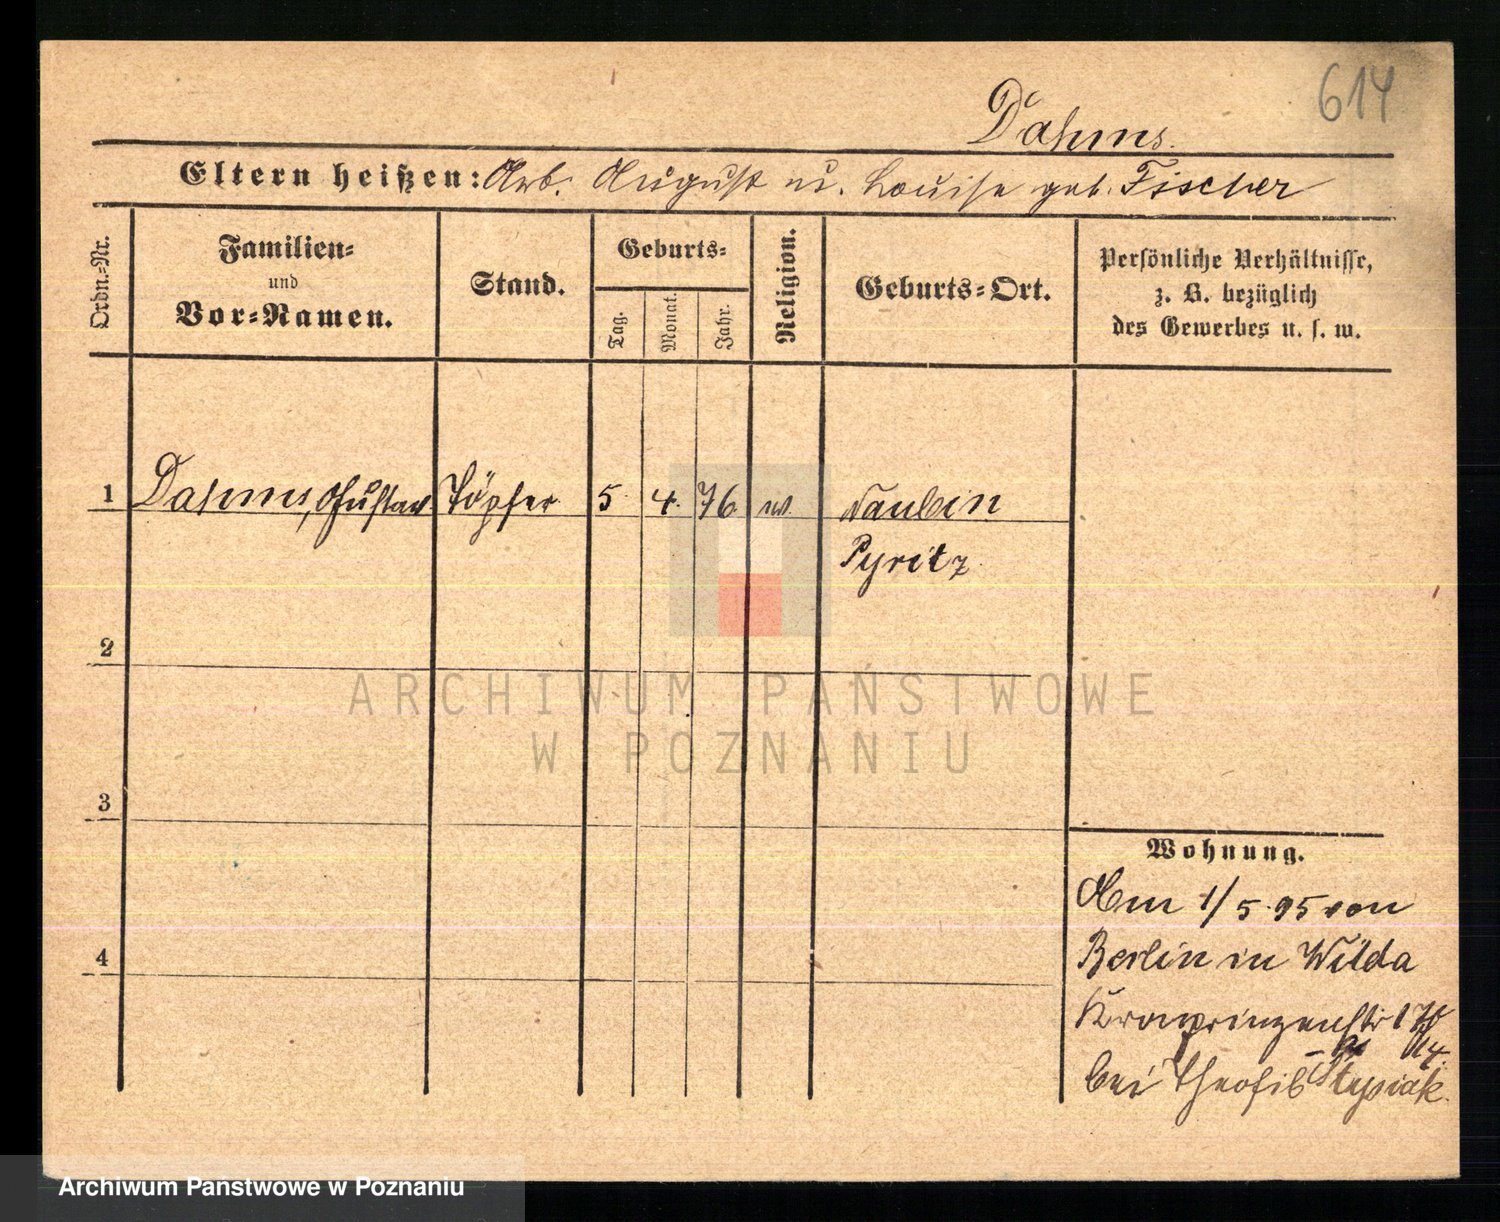 614
Dahms.
Eltern heißen: Arb. August u. Louise geb. Fischer
Ordn.-Nr.
Familien-
und
Vor-Namen.
Stand.
Geburts-
Tag.
Monat.
Jahr.
Religion.
Geburts-Ort.
Persönliche Verhältnisse,
z. B. bezüglich
des Gewerbes u. s. w.
1 Dahms, Gustav Töpfer 5. 4. 76.
Pyritz
2
3
4
Wohnung.
Am 1/5.95 von
Berlin in Wilda
Kronprinzenstr
bei Theofil Stysiak.
ARCHIWUM PAŃSTWOWE
W POZNANIU
Archiwum Państwowe w Poznaniu